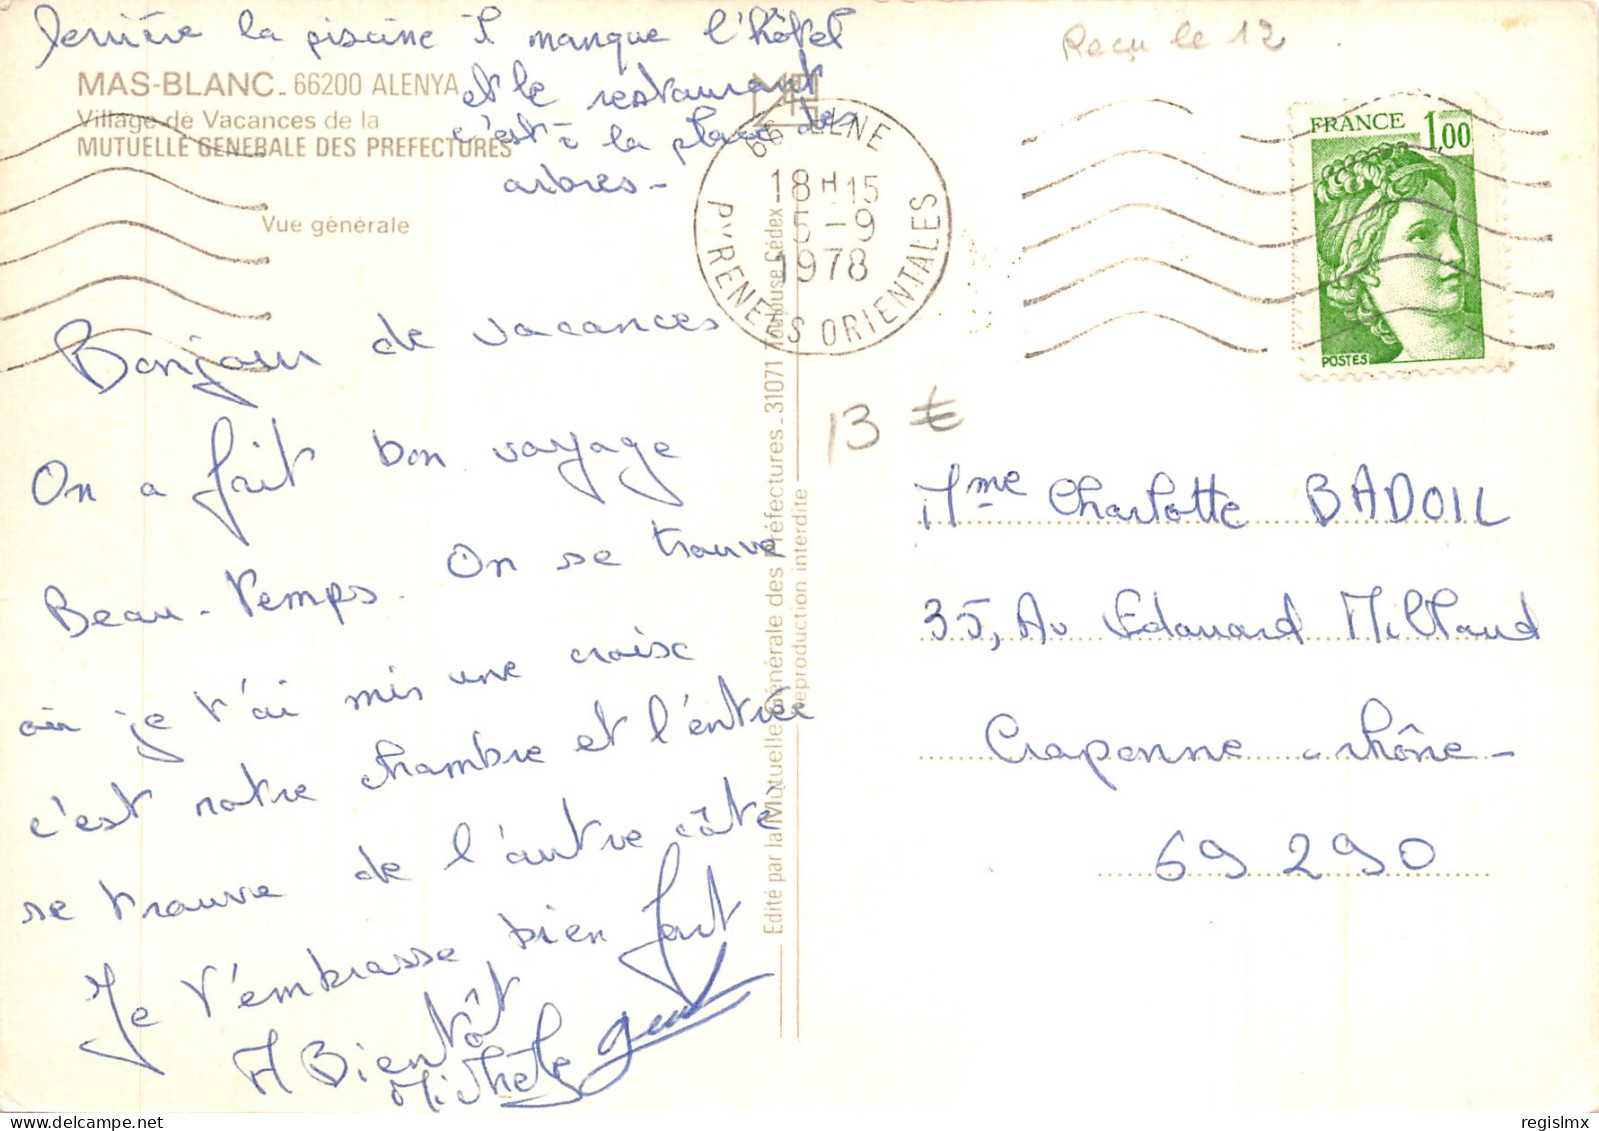 derrière la piscine il manque l'hôtel
et le restaurant
c'est à la place des
arbres -
MAS-BLANC - 66200 ALENYA
Village de Vacances de la
MUTUELLE GENERALE DES PREFECTURES
Vue générale
Bonjour de vacances
On a fait bon voyage
Beau-temps. On se trouve
où je t'ai mis une croix
c'est notre chambre et l'entrée
se trouve de l'autre côté
Je t'embrasse bien fort
A Bientôt
Michèle
Edité par la Mutuelle Générale des Préfectures - 31071 Toulouse Cédex
Reproduction interdite
66 ELNE
18 H 15
5 - 9
1978
PYRENEES ORIENTALES
Reçu le 12
FRANCE 1,00
POSTES
13 €
Mme Charlotte BADOIL
35, Av Edouard Millaud
Craponne - Rhône -
69290
delcampe.net
regislmx